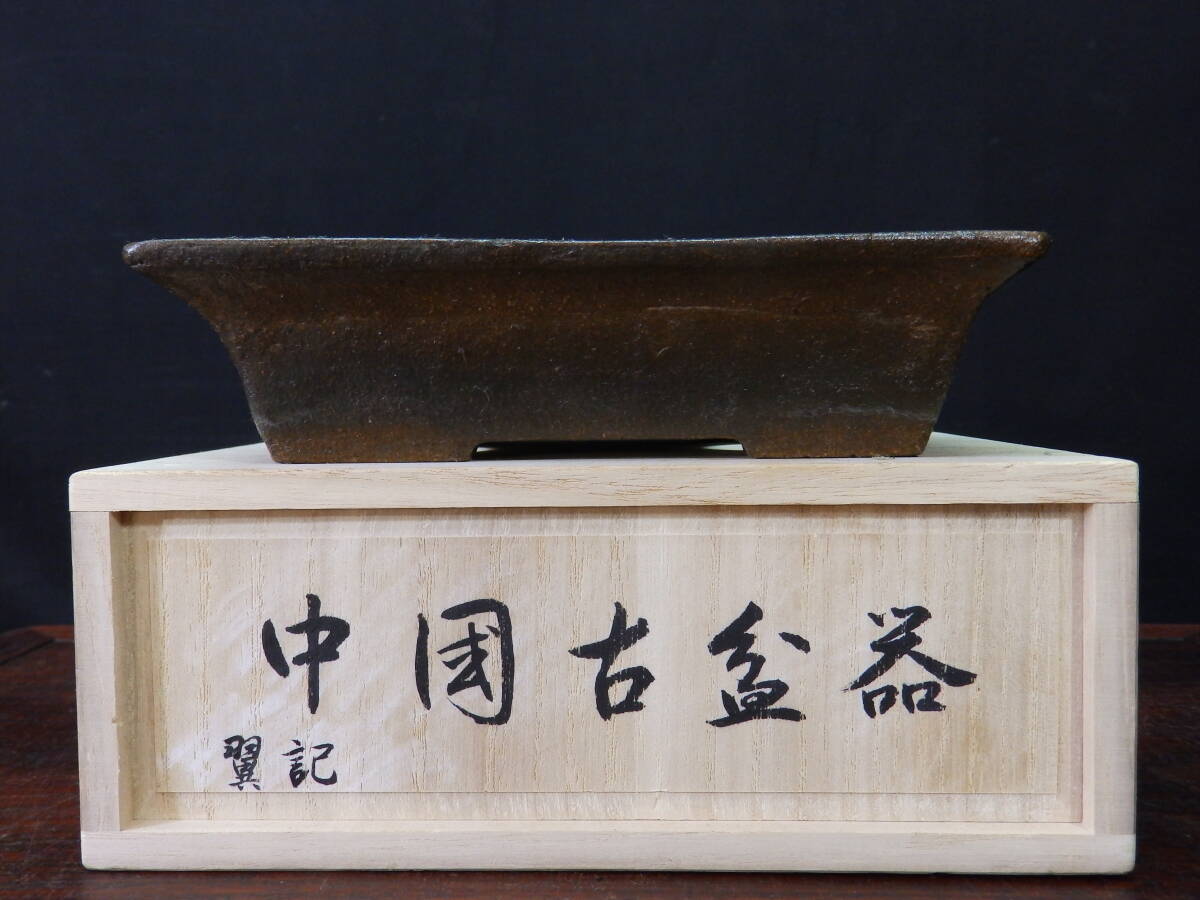 中国古盆器
翼記